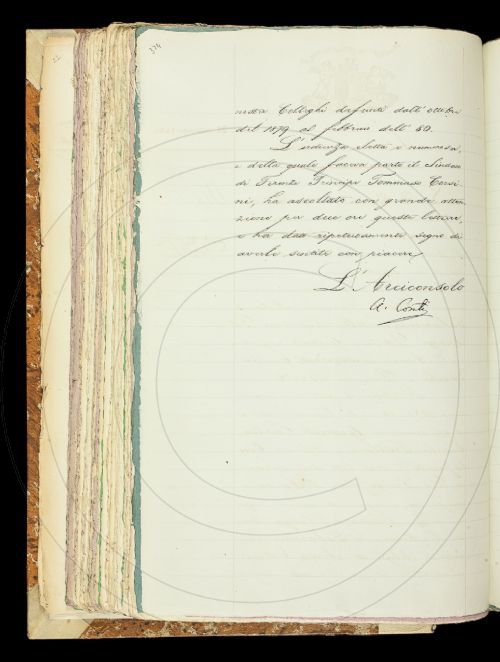 324
nostri Colleghi defunti dall'ottobre
del 1879 al febbraio dell' 80.
L'udienza eletta e numerosa,
e della quale faceva parte il Sindaco
di Firenze Principe Tommaso Corsi-
ni, ha ascoltato con grande atten-
zione per due ore queste letture
e ha dato ripetutamente segno di
averle sentite con piacere
L'Arciconsolo
A. Conti